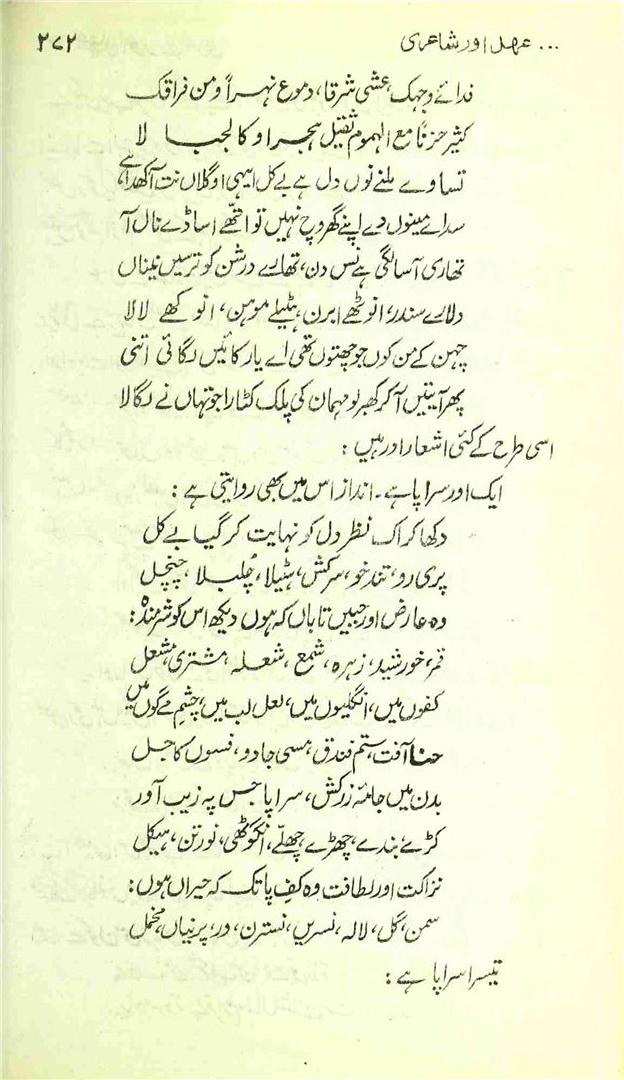 ... عہد اور شاعری ۲۷۲
فدائے وجہک عشی شرقا، دموع نہراً و من فراقک
کثیر حزناً مع الہموم ثقیل ہجرا و کالجبا لا
تساوے ملنے نوں دل ہے بے کل ایہی او گلاں نت آکھدا ہے
سداے مینوں دے اپنے گھر وچ نہیں تو اتھے اساڈے نال آ
تھاری آسا لگی ہے نس دن، تھارے درشن کو ترسیں نیناں
دلارے سندر، انوٹھے ابرن، ہٹیلے موہن، انوکھے لالا
چہن کے من کوں جو چھتوں تھی اے یار کائیں رگائی اتنی
پھر آیتیں آکر کھبر لو مہمان کی پلک کٹارا جو تہاں نے رگالا
اسی طرح کے کئی اشعار اور ہیں :
ایک اور سراپا ہے۔ انداز اس میں بھی روایتی ہے :
دکھا کر اک نظر دل کو نہایت کر گیا بے کل
پری رو، تند خو، سرکش، ہٹیلا، چُلبلا، چنچل
وہ عارض اور جبیں تاباں کہ ہوں دیکھ اس کو شرمندہ:
قمر، خورشید، زہرہ، شمع، شعلہ، مشتری، مشعل
کفوں میں، انگلیوں میں، لعل لب میں، چشمِ مے گوں میں
حنا آفت، ستم فندق، مسی جادو، فسوں کاجل
بدن میں جامۂ زرکش، سراپا جس پہ زیب آور
کڑے، بندے، چھڑے، چھلے، انگوٹھی، نورتن، ہیکل
نزاکت اور لطافت وہ کفِ پا تک کہ حیراں ہوں:
سمن، گل، لالہ، نسریں، نسترن، در، پرنیاں، مخمل
تیسرا سراپا ہے :